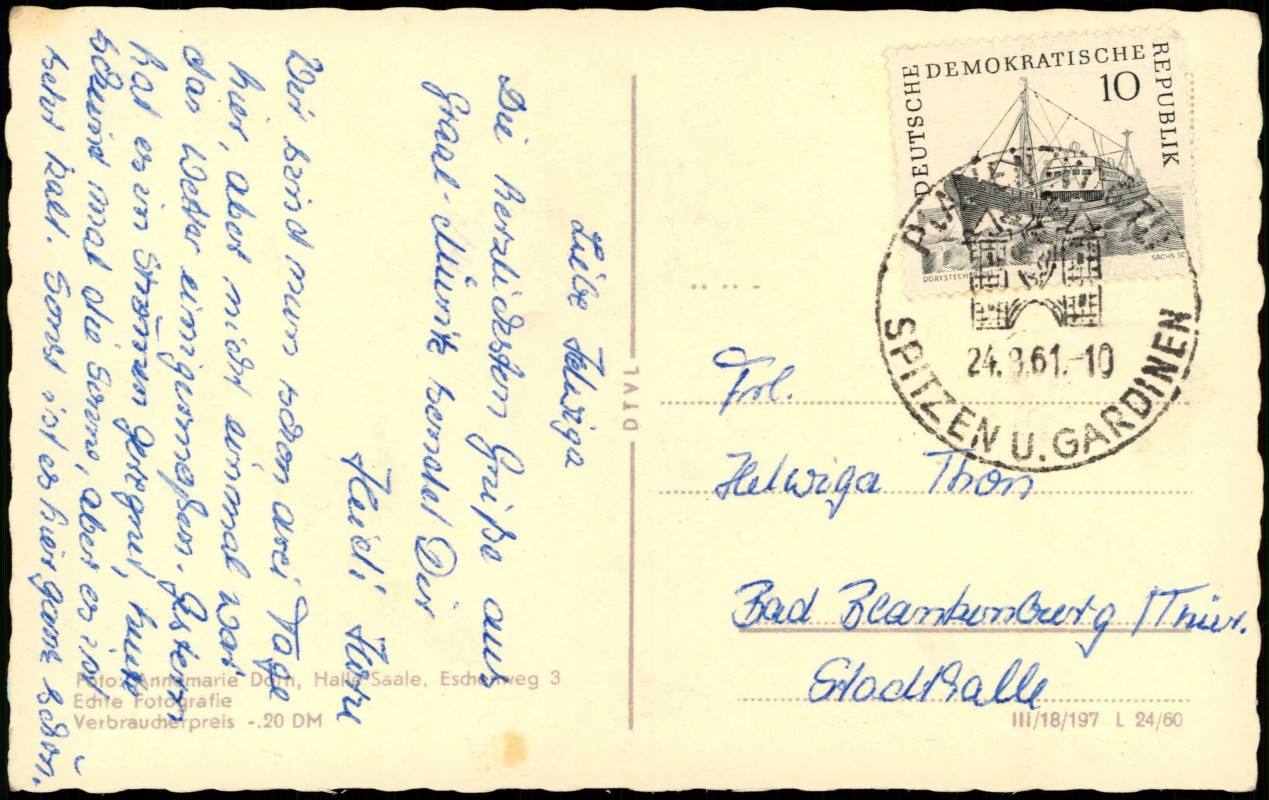 Liebe Helwiga
Die herzlichsten Grüße aus
Graal-Müritz sendet Dir
Heidi
Wir sind nun schon drei Tage
hier, aber nicht einmal war
das Wetter einigermaßen. Gestern
hat es in Strömen geregnet, heute
scheint mal die Sonne, aber es ist
sehr kalt. Sonst ist es hier ganz schön.
Foto: Annemarie Dorn, Halle Saale, Eschenweg 3
Echte Fotografie
Verbraucherpreis -.20 DM
DTVL
DEUTSCHE DEMOKRATISCHE REPUBLIK
10
DORFSTECH
SACHS SC
24.8.61.-10
SPITZEN U. GARDINEN
Frl.
Helwiga Thon
Bad Blankenburg /Thür.
Stadthalle
III/18/197 L 24/60